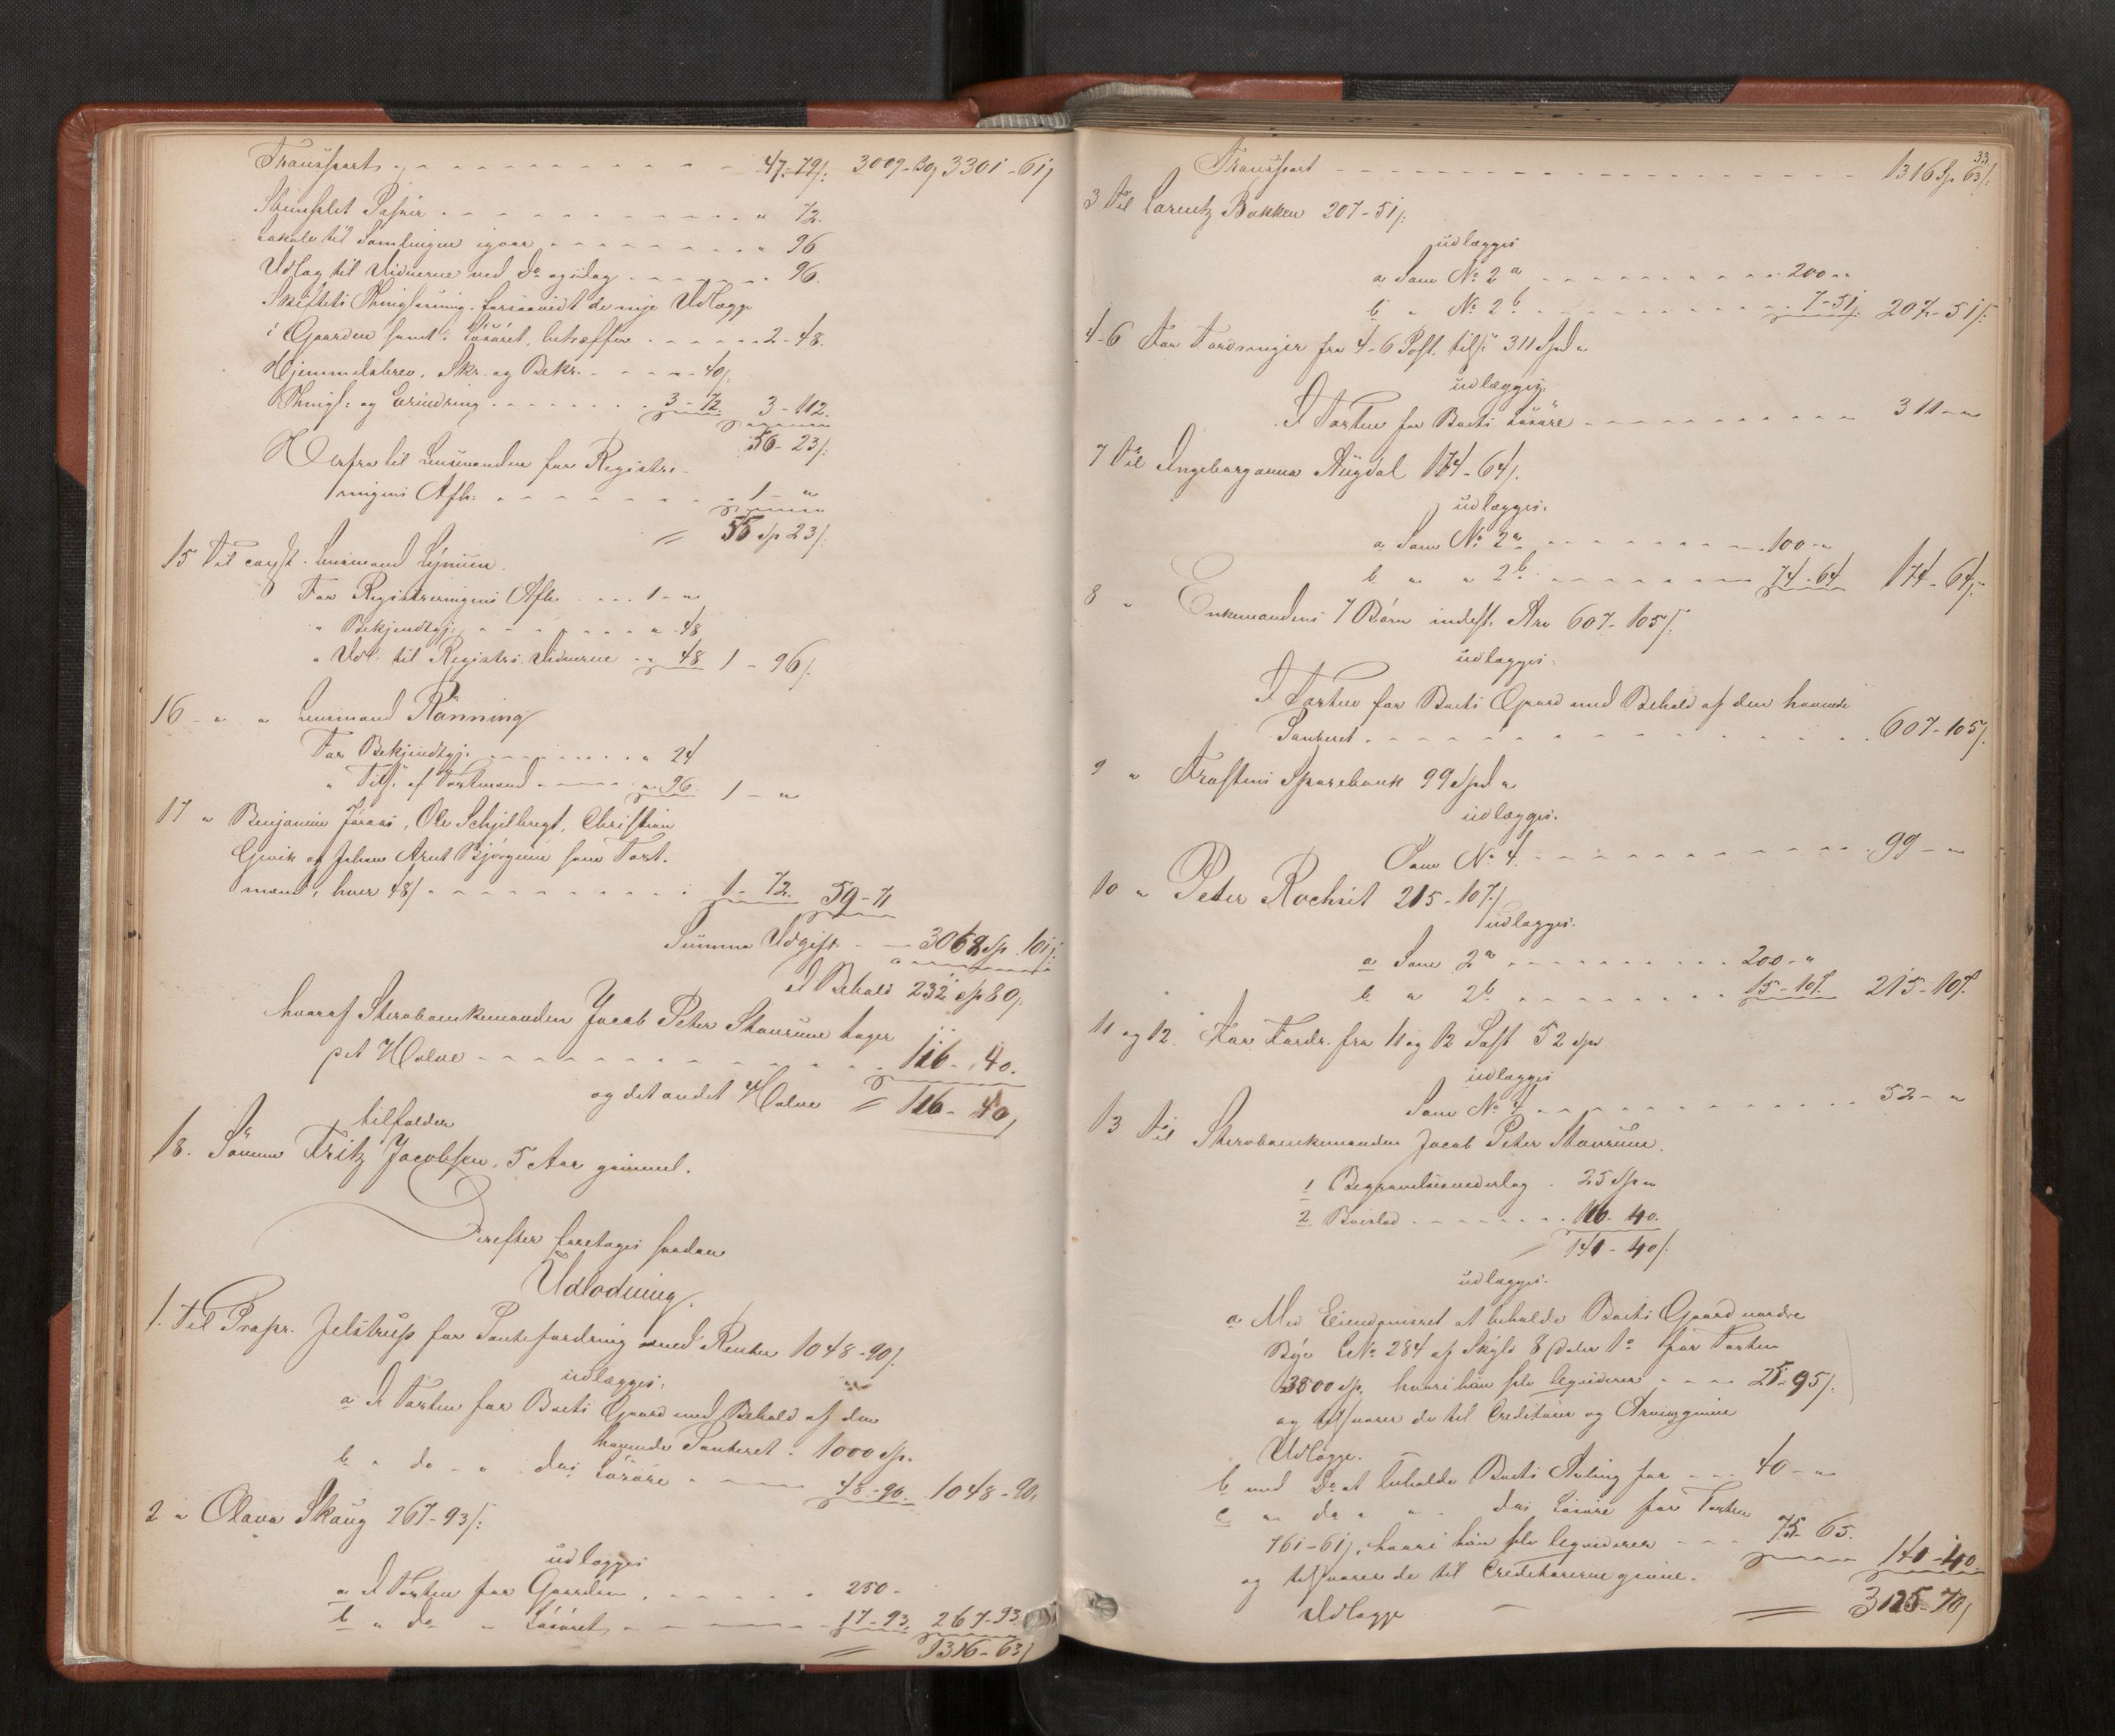 Transport - - - 47-79/: 3009-30/ 3301-61/
Stemplet Papir - - - " 72.
Lokale til Samlingen igaar - - - " 96
Udlæg til Vidnerne ved Do og idag - - - 96.
Skiftets Thinglæsning, forsaavidt de nye Udlægge
i Gaarden samt i Løsøret betræffer - - - 2-48.
Hjemmelsbrev, Skr. og Bekr. - - - 40/:
Thingl: og Erindring - - - 3-72. 3-112.
56-23/:
Herfra til Lensmanden for Registre-
ringens Afh: - - - 1-"
= 55 Sp 23/.
15 Til const. Lensmand Lynum
For Registreringens Afh. - - - 1-"
" Bekjendtgj: - - - " 48
" Udl. til Registr. Vidnerne - " 48 1-96/.
16 " " Lensmand Rönning
For Bekjendtgj. - - - " 24
" Tils. af Taxtmænd - - - " 96. 1-"
17 " Benjamin Joraas, Ole Schjelbregt, Christian
Gjevik og Johan Arnt Bjørgum som Taxt-
mænd, hver 48/ - - - 1-72. 59-71
Summa Udgift - - 3068 Sp. 101/:
I Behold 232 Sp 80/.
hvoraf Stervboenkemanden Jacob Peter Stavrum tager
det Halve - - - 116-40.
og det andet Halve = 116-40/
tilfalder
18. Sønnen Fritz Jacobsen, 5 Aar gammel.
Derefter foretages saadan
Udlodning.
1. Til Propr. Jelstrup for Pantefordring med Renter 1048-90/.
udlægges:
a I Taxten for Boets Gaard med Behold af den
havende Panteret - 1000 Sp.
b " do - " des Løsøre - - - 48-90. 1048-90,
2 " Olava Skaug 267-93/:
udlægges
a I Taxten for Gaarden - - - 250-
b " do " Løsøret - - - 17-93. 267-93.
= 1316-63/
33.
Transport - - - 1316 Sp 63/:
3 Til Lorentz Bakken 207-51/:
udlægges
a Som No 2 a - - - 200-"
b " No 2 b - - - 7-51/: 207-51/:
4-6 For Fordringer fra 4-6 Post tils: 311 Spd "
udlægges
I Taxten for Boets Løsøre - - - 311-"
7 Til Ingeborganna Augdal 174-64/.
udlægges.
a Som No 2 a - - - 100-"
b " " 2 b - - - 74-64 174-64/:
8 " Enkemandens 7 Børn indest. Arv 607-105/:
udlægges:
I Taxten for Boets Gaard med Behold af den havende
Panteret - - - 607-105/.
9 " Frostens Sparebank 99 Spd "
udlægges.
Som No 4. - - - 99-"
10 " Peter Rochsit 215-107/
udlægges.
a Som 2 a - - - 200-"
b " 2 b - - - 15-107. 215-107.
11 og 12. For Fordr. fra 11 og 12 Post 52 Spd
udlægges
Som No 4 - - - 52-"
13 Til Stervboenkemanden Jacob Peter Stavrum.
1 Begravelsesvederlag - 25 Sp "
2 Boeslod - - - 116-40.
= 141-40/.
udlægges.
a Med Eiendomsret at beholde Boets Gaard nordre
Bye LNo 284 af Skyld 8 Daler 1 s for Taxten
3500 Sp. hvori han selv liqviderer - - - 25-95/.
og tilsvarer de til Creditorer og Arvinger givne
Udlægge.
b med Do at beholde Boets Avling for - - - 40-"
c " do " " des Løsøre for Taxten
761-61/, hvori han selv liqviderer - - - 75-65.
og tilsvarer de til Creditorerne givne 141-40
Udlægge = 3125-70/